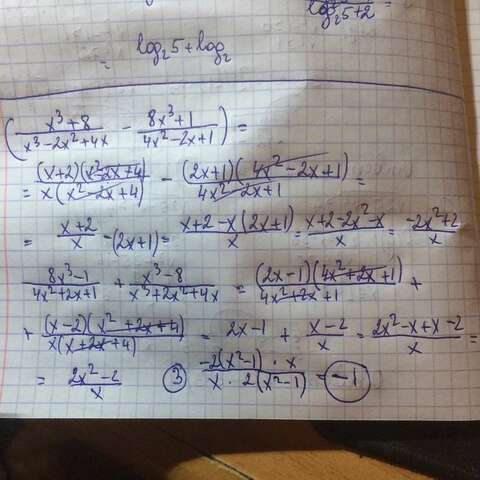 log₂5+2 =
= log₂5 + log₂
(x³+8)/(x³-2x²+4x) - (8x³+1)/(4x²-2x+1)) =
= (x+2)(x²-2x+4)/x(x²-2x+4) - (2x+1)(4x²-2x+1)/4x²-2x+1 =
= (x+2)/x - (2x+1) = (x+2-x(2x+1))/x = (x+2-2x²-x)/x = (-2x²+2)/x
(8x³-1)/(4x²+2x+1) + (x³-8)/(x³+2x²+4x) = (2x-1)(4x²+2x+1)/4x²+2x+1 +
+ (x-2)(x²+2x+4)/x(x+2x+4) = 2x-1 + (x-2)/x = (2x²-x+x-2)/x =
= (2x²-2)/x ③ -2(x²-1)·x/x·2(x²-1) = -1